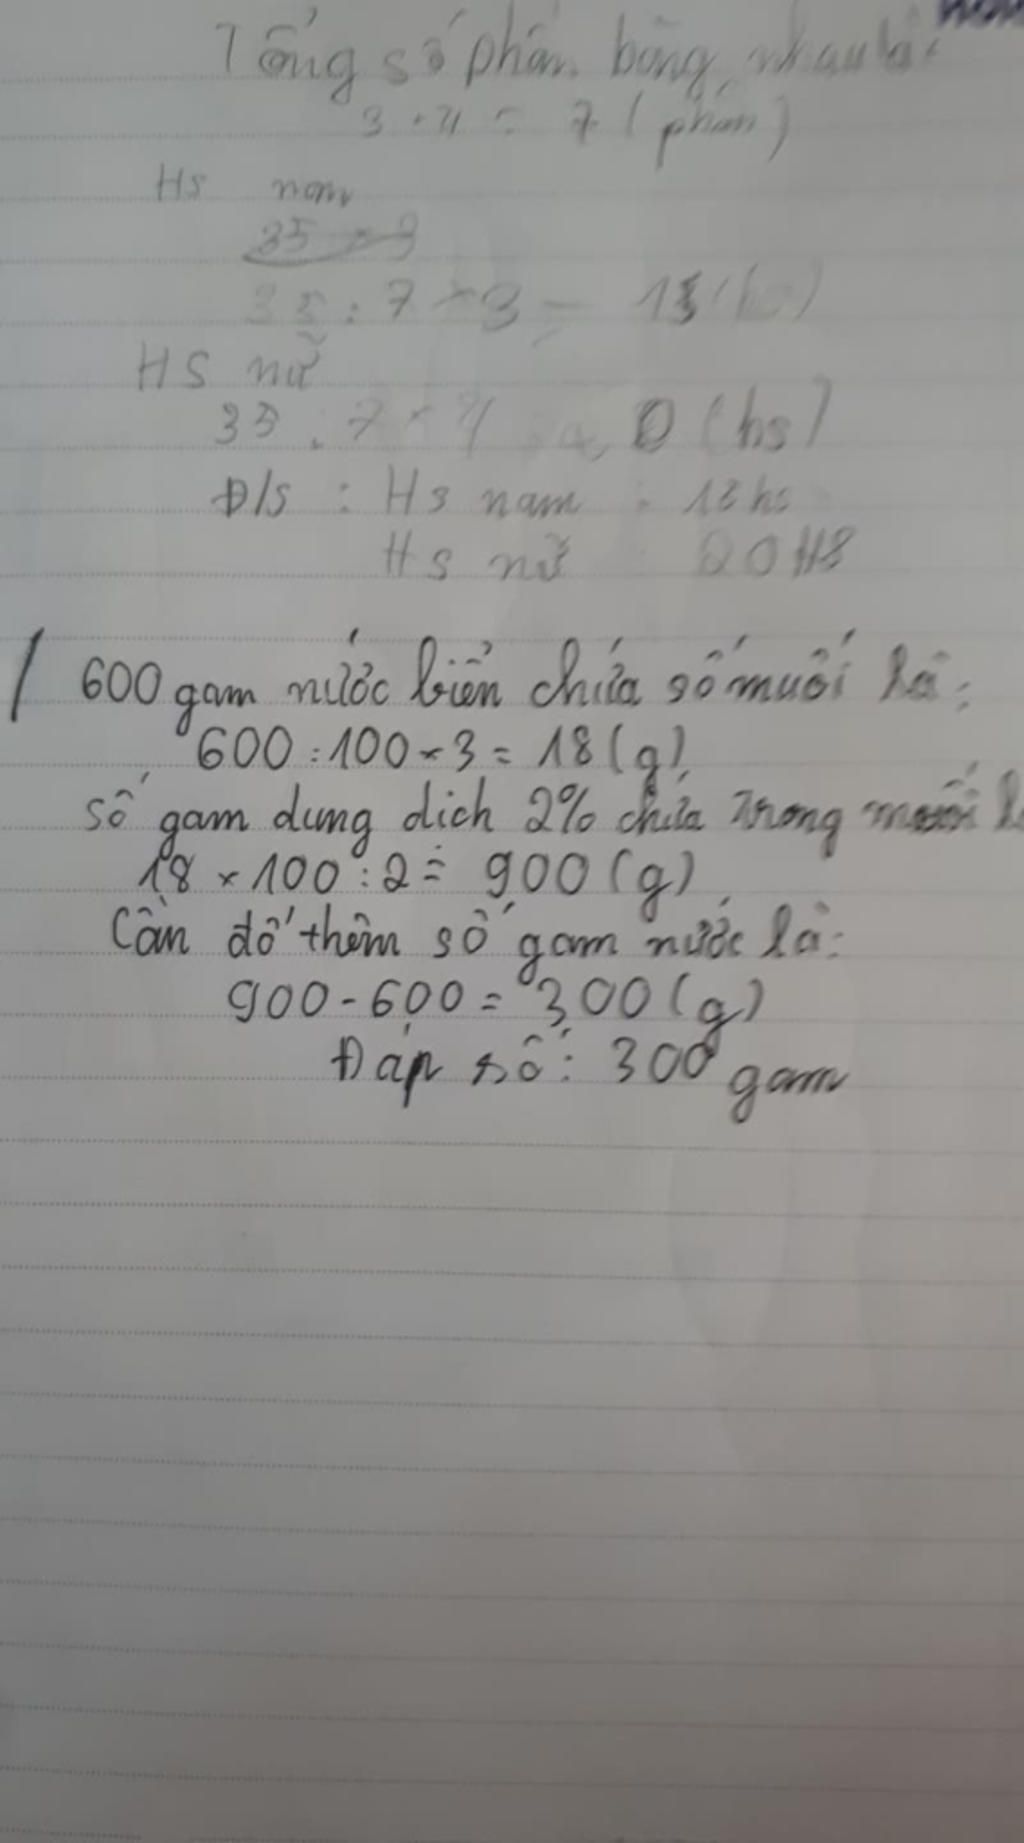 Tổng số phần bằng nhau là:
3 + 4 = 7 (phần)
HS nam
35 × 3
35 : 7 × 3 = 15 (hs)
HS nữ
35 : 7 × 4 = 20 (hs)
Đ/S : Hs nam : 15 hs
Hs nữ 20 HS
/ 600 gam nước biển chứa số muối là:
600 : 100 × 3 = 18 (g)
số gam dung dich 2% chứa trong muối
18 × 100 : 2 = 900 (g)
Cần đổ thêm số gam nước là:
900 - 600 = 300 (g)
Đáp số: 300 gam